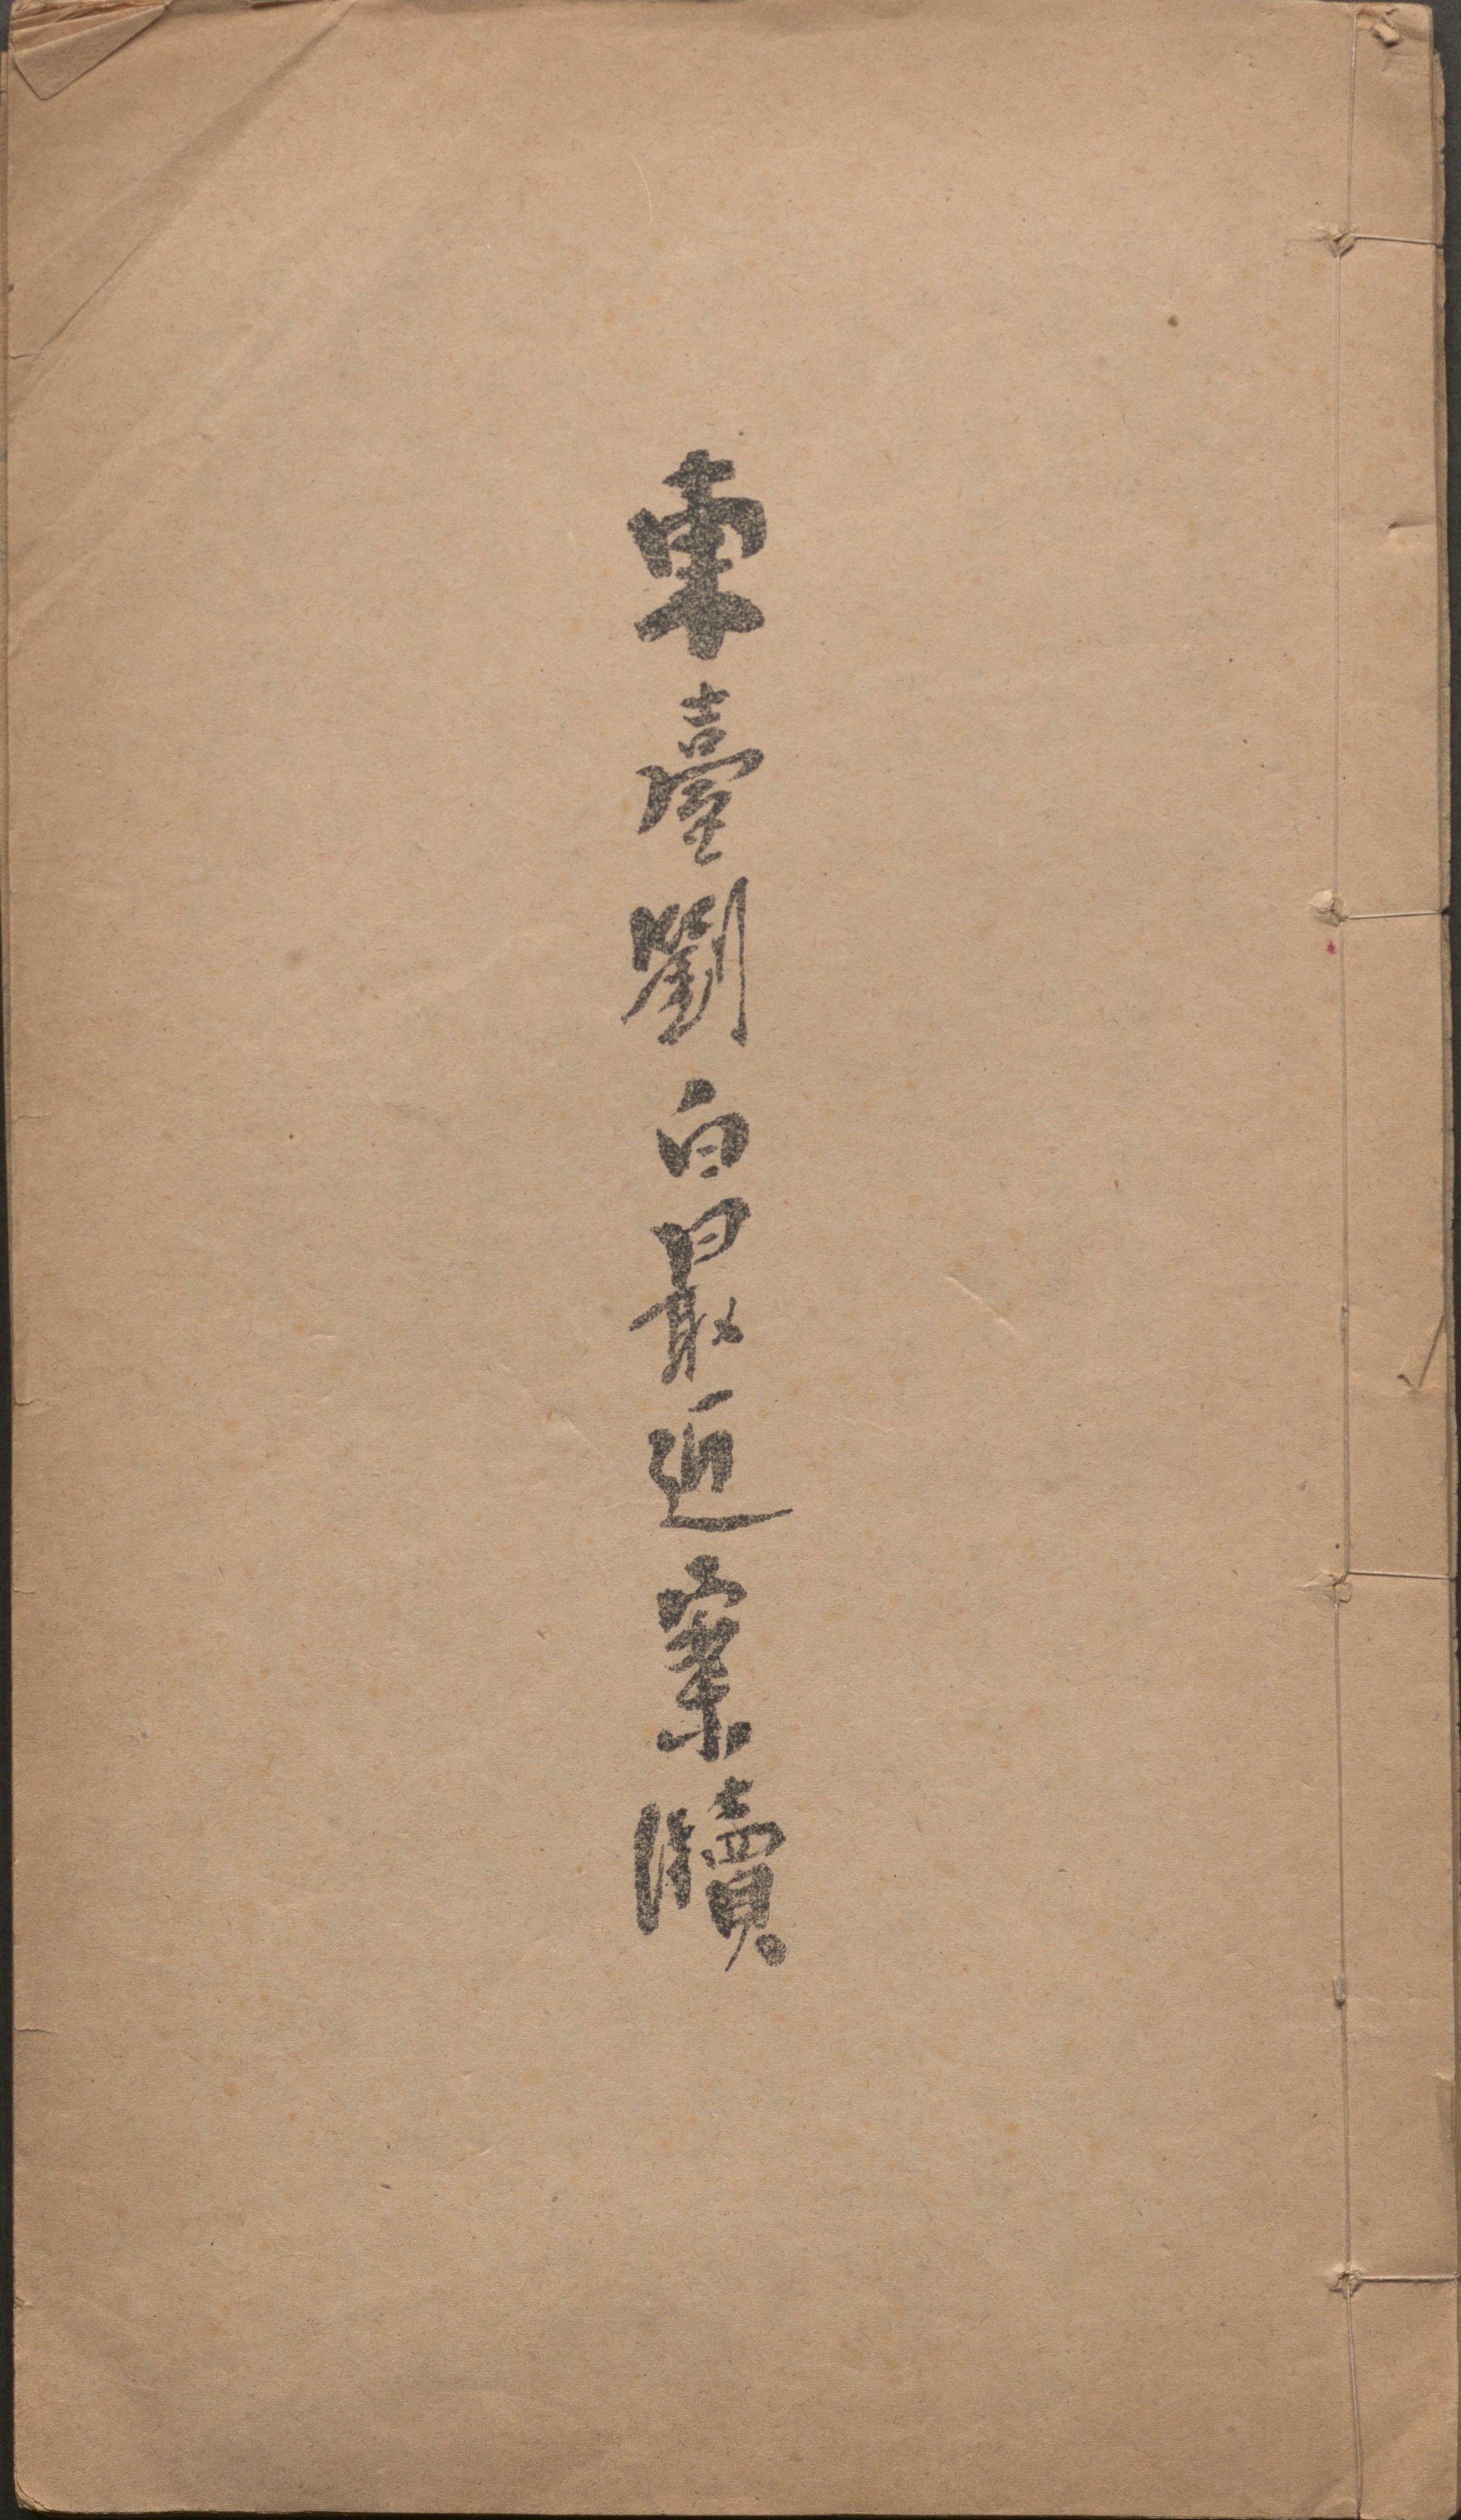 東臺劉白最近案牘